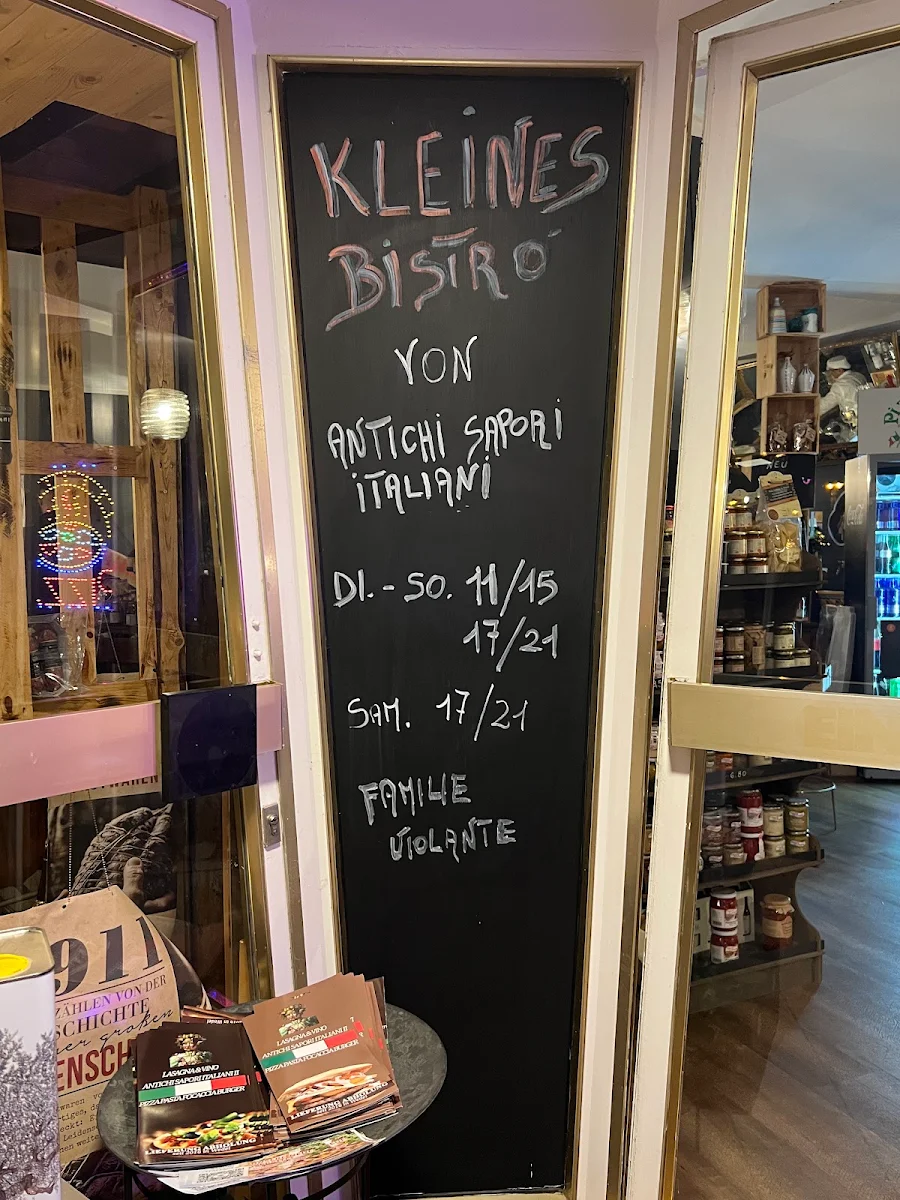 KLEINES
BISTRÓ
VON
ANTICHI SAPORI
ITALIANI
DI.-SO. 11/15
17/21
SAM. 17/21
FAMILIE
VIOLANTE
NEU
6.80
911
ZÄHLEN VON DER
SCHICHTE
großen
ENSCH
LASAGNA & VINO
ANTICHI SAPORI ITALIANI II
PIZZA PASTA FOCACCIA BURGER
LIEFERUNG ABHOLUNG
LASAGNA & VINO
ANTICHI SAPORI ITALIANI II
PIZZA PASTA FOCACCIA BURGER
LIEFERUNG ABHOLUNG